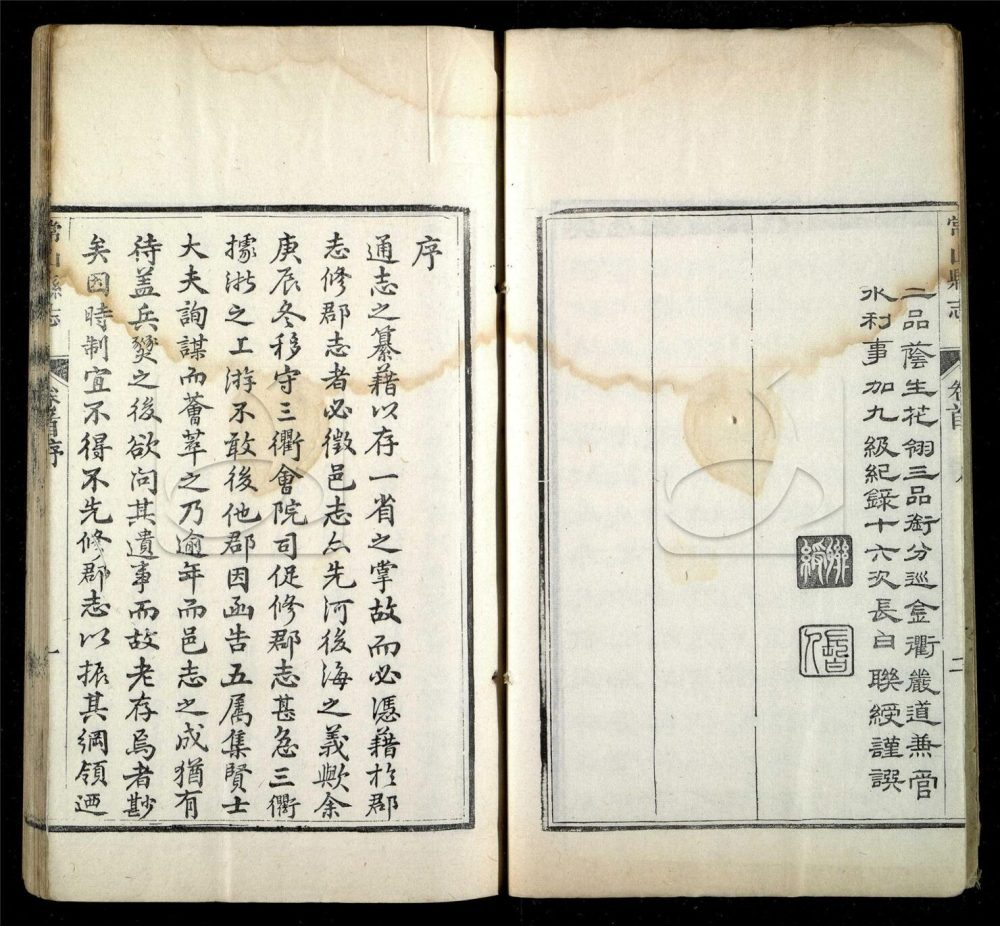 常山縣志
卷首
二
二品蔭生花翎三品銜分巡金衢嚴道兼管
水利事加九級紀錄十六次長白聯綬謹譔
聯綬
長白
序
通志之纂藉以存一省之掌故而必憑藉於郡
志修郡志者必徵邑志亦先河後海之義歟余
庚辰冬移守三衢會院司促修郡志甚急三衢
據浙之上游不敢後他郡因函告五属集賢士
大夫詢謀而薈萃之乃逾年而邑志之成猶有
待盖兵燹之後欲问其遺事而故老存焉者尠
矣因時制宜不得不先修郡志以振其綱領迺
常山縣志
卷首序
一